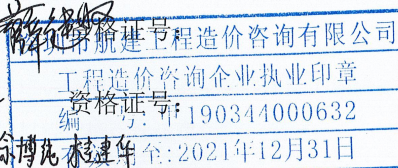 航建工程造价咨询有限公司
证号:
工程造价咨询企业执业印章
资格证号:
编 号:甲190344000632
至:2021年12月31日